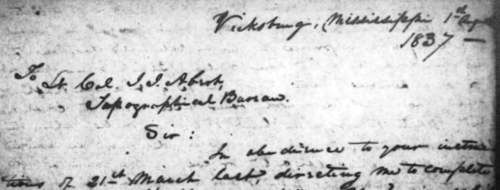 Vicksburg, Mississippi 1st
1837 —
To Lt. Col. J. J. Abert,
Topographical Bureau.
Sir:
In obedience to your instruc
tions of 21st March last, directing me to complete